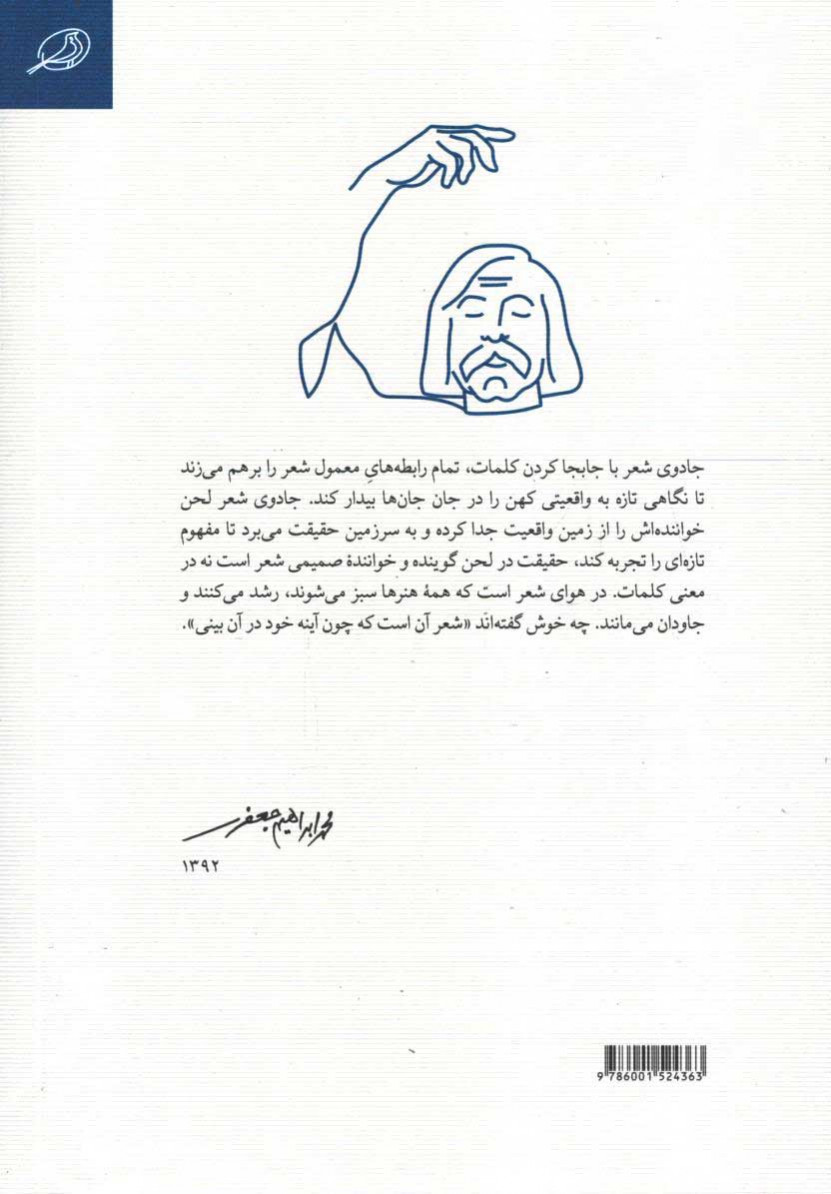 جادوی شعر با جابجا کردن کلمات، تمام رابطه‌هایِ معمول شعر را برهم می‌زند
تا نگاهی تازه به واقعیتی کهن را در جان جان‌ها بیدار کند. جادوی شعر لحن
خواننده‌اش را از زمین واقعیت جدا کرده و به سرزمین حقیقت می‌برد تا مفهوم
تازه‌ای را تجربه کند، حقیقت در لحن گوینده و خوانندهٔ صمیمی شعر است نه در
معنی کلمات. در هوای شعر است که همهٔ هنرها سبز می‌شوند، رشد می‌کنند و
جاودان می‌مانند. چه خوش گفته‌اند «شعر آن است که چون آینه خود در آن بینی».
محمدابراهیم جعفری
۱۳۹۲
9 786001 524363